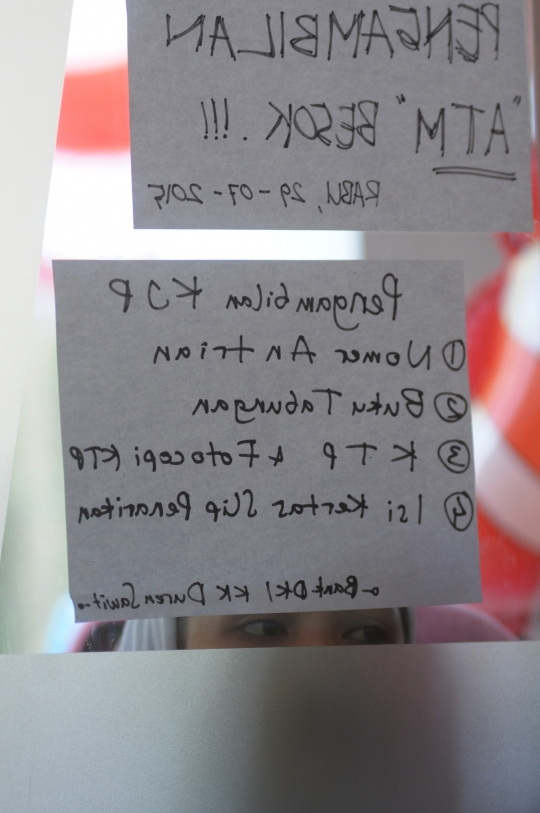 PENGAMBILAN
"ATM" BESOK . !!!
RABU, 29-07-2015
Pengambilan KJP
① Nomer Antrian
② Buku Tabungan
③ KTP & Fotocopi KTP
④ Isi Kertas Slip Penarikan
-o Bank DKI KK Duren Sawit -o-